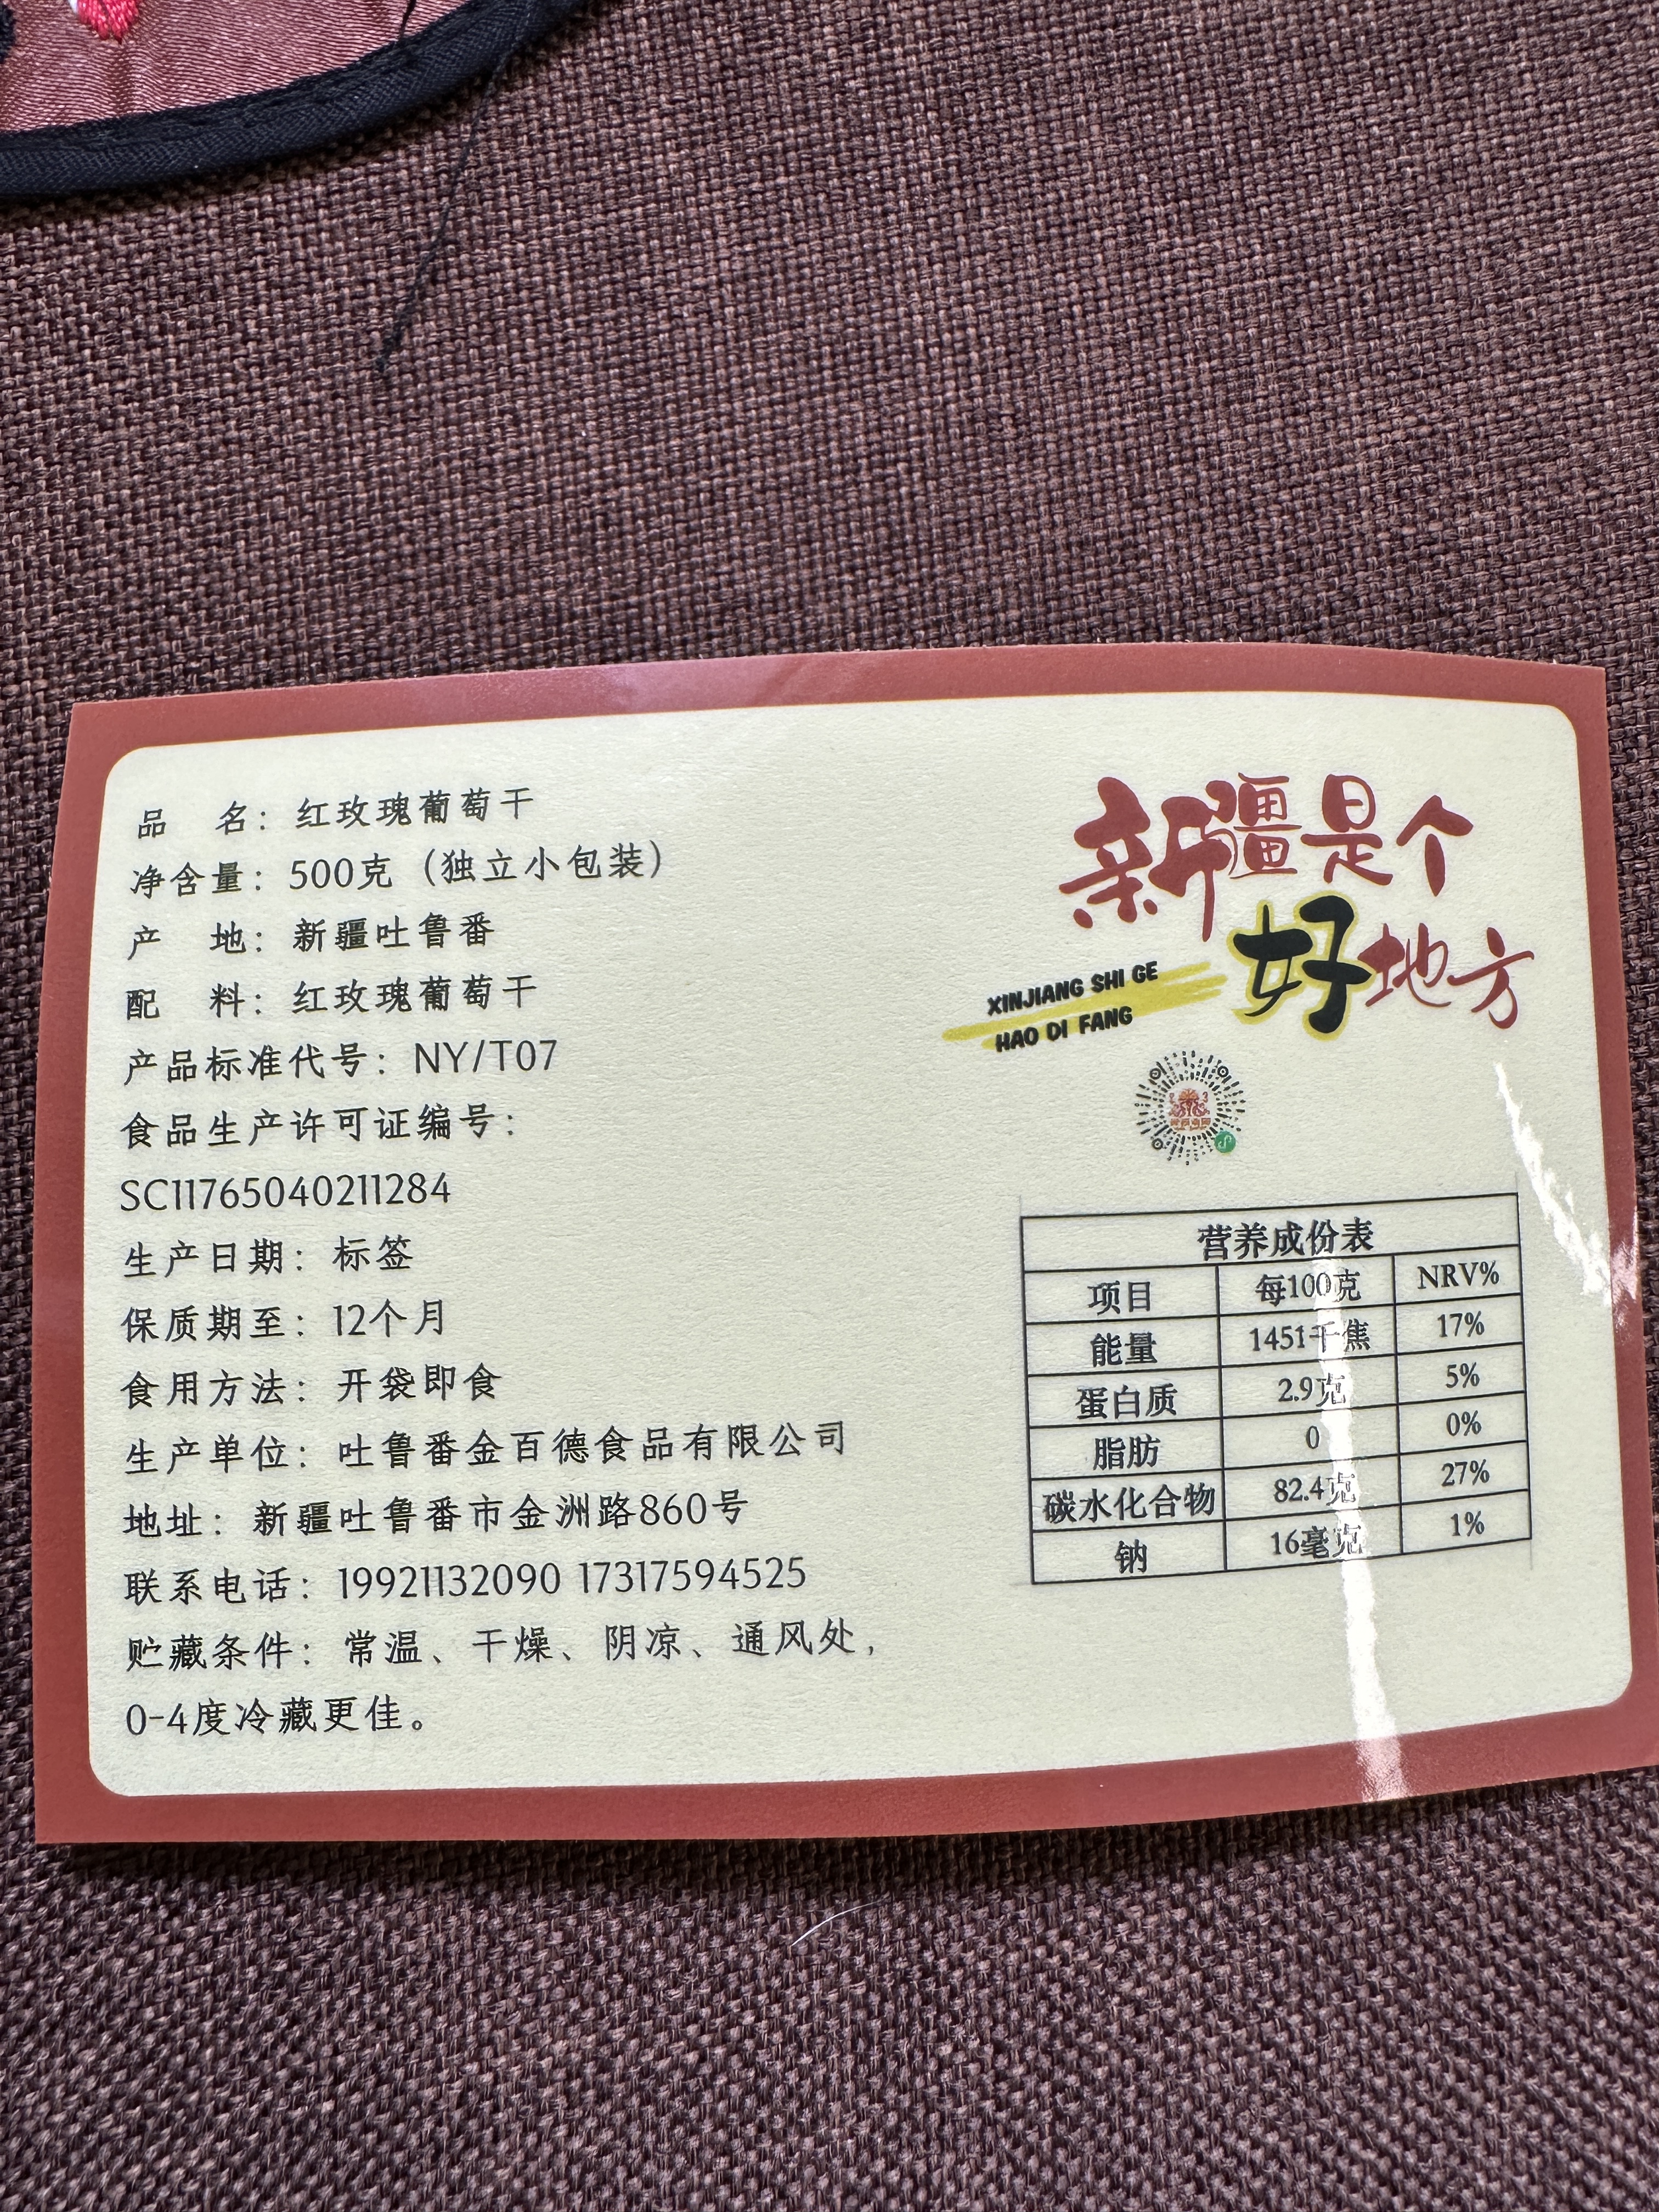 品 名：红玫瑰葡萄干
净含量：500克（独立小包装）
产 地：新疆吐鲁番
配 料：红玫瑰葡萄干
产品标准代号：NY/T07
食品生产许可证编号：
SC11765040211284
生产日期：标签
保质期至：12个月
食用方法：开袋即食
生产单位：吐鲁番金百德食品有限公司
地址：新疆吐鲁番市金洲路860号
联系电话：19921132090 17317594525
贮藏条件：常温、干燥、阴凉、通风处，
0-4度冷藏更佳。
新疆是个
好地方
XINJIANG SHI GE
HAO DI FANG
营养成份表
项目 每100克 NRV%
能量 1451千焦 17%
蛋白质 2.9克 5%
脂肪 0 0%
碳水化合物 82.4克 27%
钠 16毫克 1%